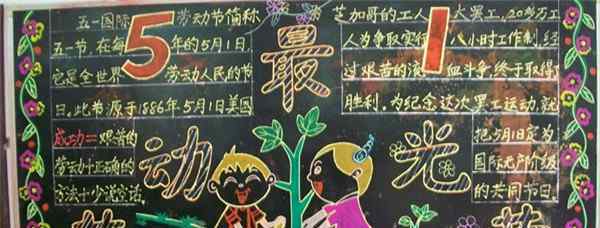 五一国际劳动节简称
五一节,在每年的5月1日
它是全世界劳动人民的节
日。此节源于1886年5月1美国
成功=艰苦的
劳动十正确的
方法十少说空话。
5
1
最
动
光
芝加哥的工人大罢工,20多万工
人为争取实行八小时工作制,经
过艰苦的流血斗争,终于取得
胜利。为纪念这次罢工运动,就
把5月1日定为
国际无产阶级
的共同节日。